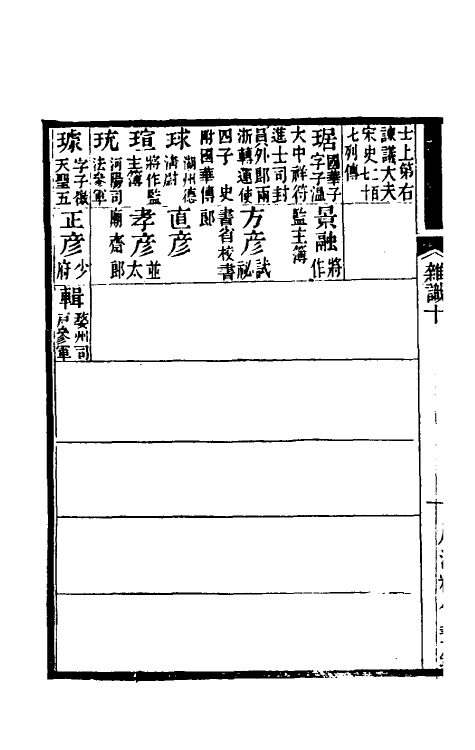 士上第右
諫議大夫
宋史二百
七十七列傳
琚
國華子
字子温
大中祥符
進士司封
員外郎兩
浙轉運使
四子 史
附國華傳
景融
將作
監主簿
方彦
試祕
書省校書
郎
球
湖州德
清尉
直彦
瑄
將作監
主簿
孝彦
並太
廟齋郎
珫
河陽司
法參軍
璩
字子徽
天聖五
正彦
少府
輯
婺州司
戸參軍
雜識十